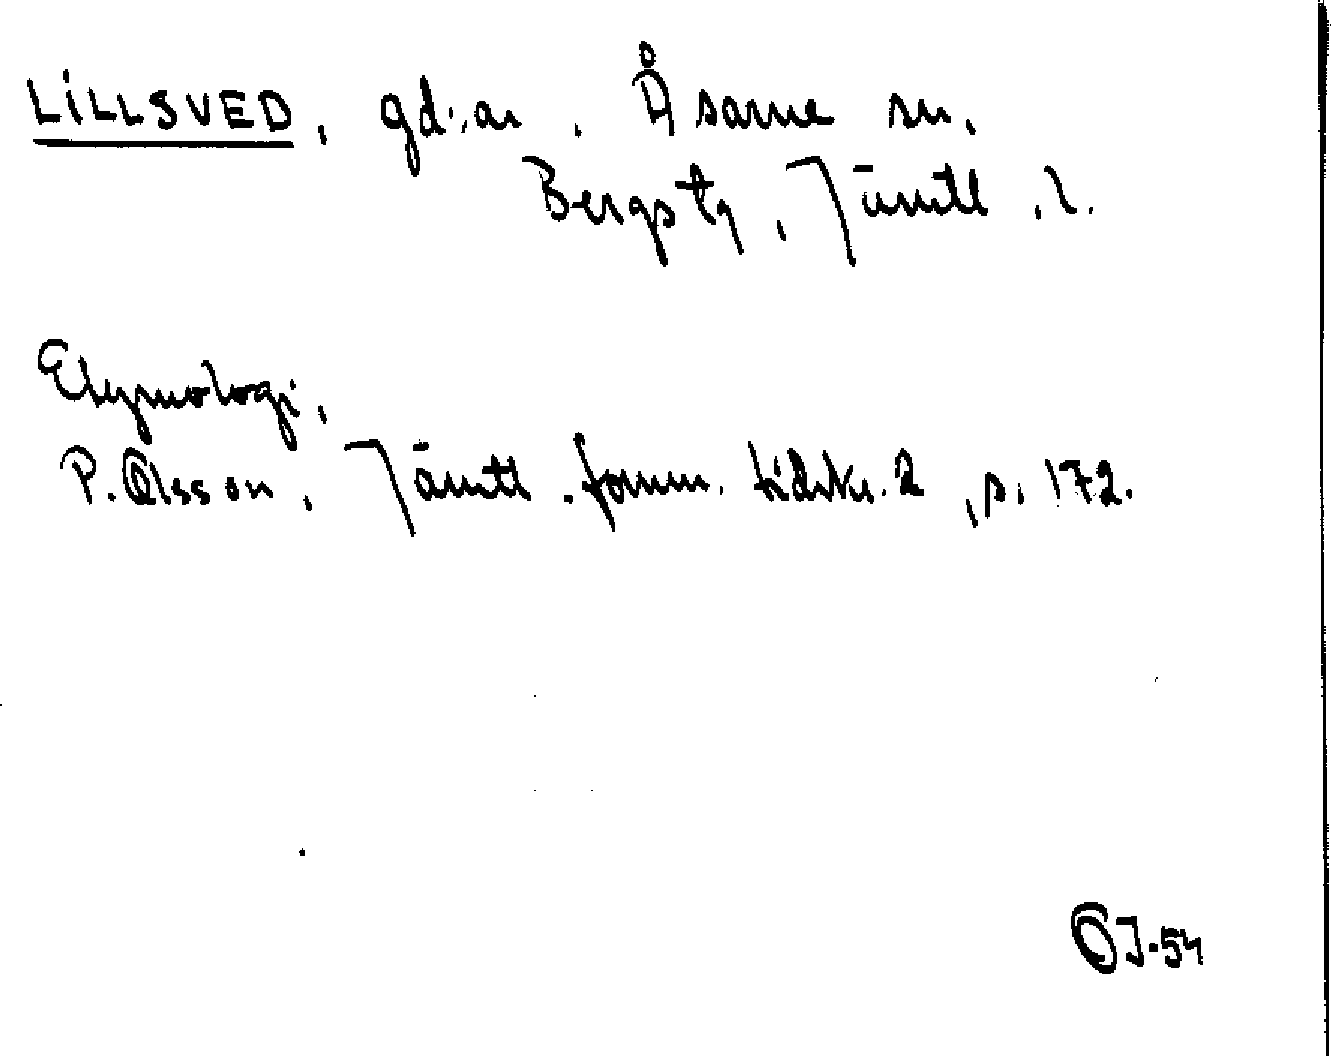 LILLSVED, gd:ar. Åsarne sn.
Bergs tg, Jämtl. l.
Etymologi,
P. Olsson, Jämtl. fornm. tidskr. 2, s. 172.
OJ-54